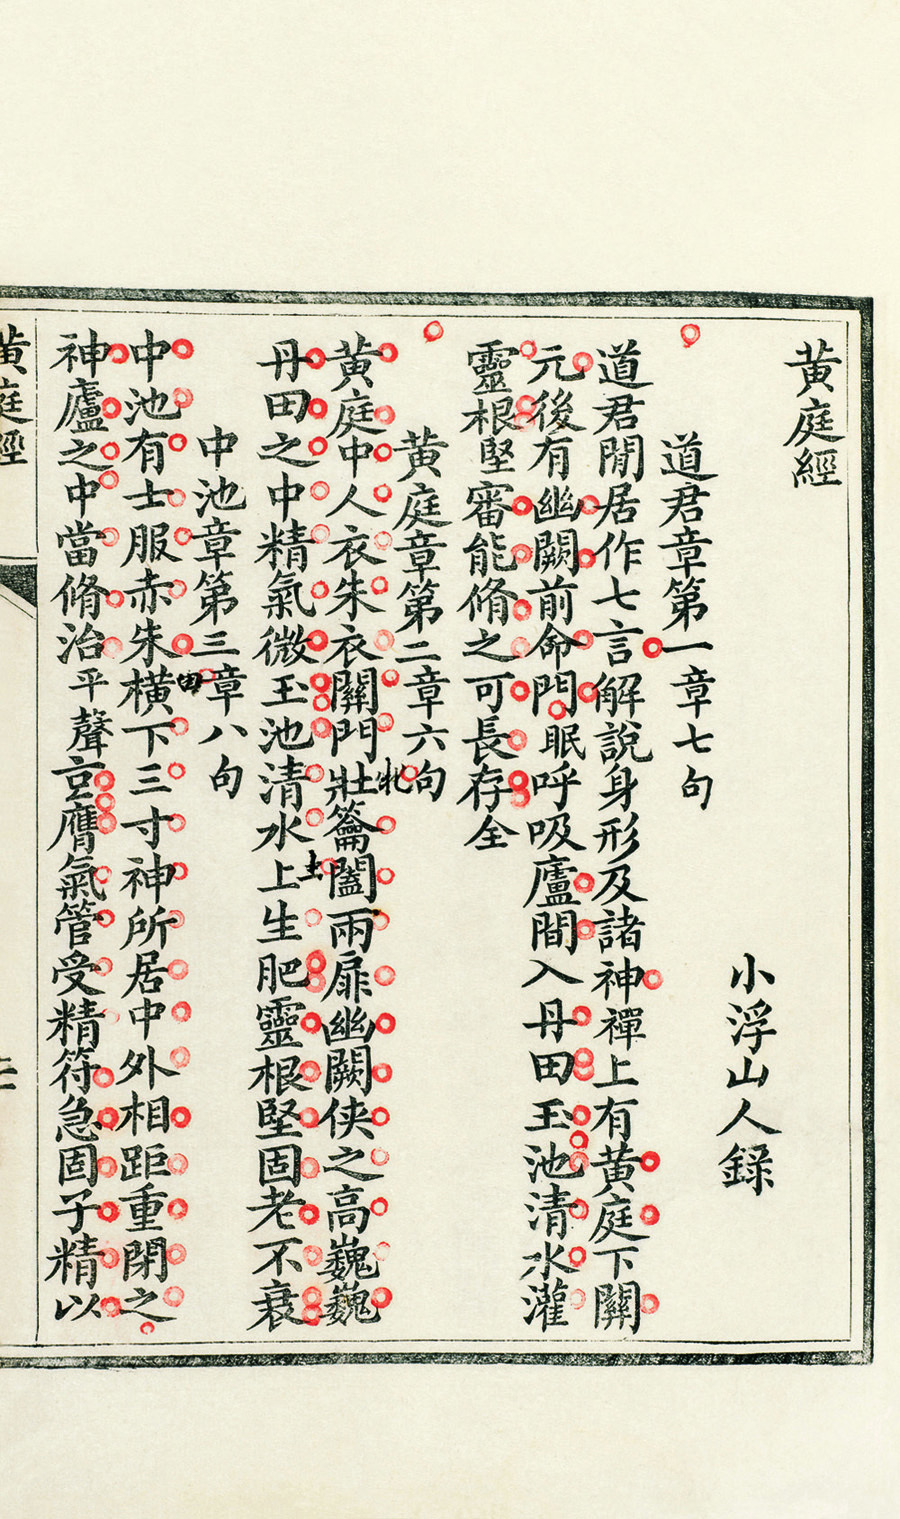 黃庭經
小浮山人錄
道君章第一章七句
道君閒居作七言解說身形及諸神禪上有黃庭下關
元後有幽闕前命門眠呼吸廬間入丹田玉池清水灌
靈根堅審能脩之可長存全
黃庭章第二章六句
黃庭中人衣朱衣關門壯籥闔兩扉幽闕俠之高巍巍
牝
丹田之中精氣微玉池清水上生肥靈根堅固老不衰
土
中池章第三章八句
中池有士服赤朱橫下三寸神所居中外相距重閉之
田
神廬之中當脩治平聲玄膺氣管受精符急固子精以
黃庭經